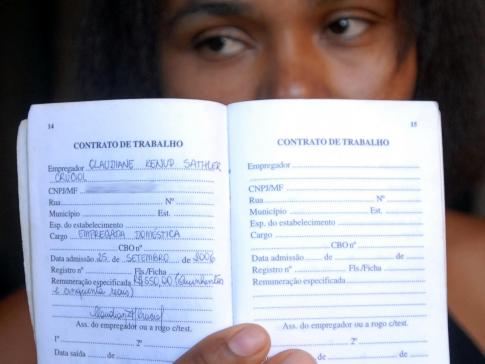 14
CONTRATO DE TRABALHO
Empregador CLAUDIANE KENUP SATHLER
CRUCIOL
CNPJ/MF
Rua Nº
Município Est.
Esp. do estabelecimento
Cargo EMPREGADA DOMÉSTICA
CBO nº
Data admissão 25 de SETEMBRO de 2006
Registro nº Fls./Ficha
Remuneração especificada R$ 550,00 (Quinhentos
e cinquenta reais)
Ass. do empregador ou a rogo c/test.
1º 2º
Data saída de de
15
CONTRATO DE TRABALHO
Empregador
CNPJ/MF
Rua Nº
Município Est.
Esp. do estabelecimento
Cargo
CBO nº
Data admissão de de
Registro nº Fls./Ficha
Remuneração especificada
Ass. do empregador ou a rogo c/test.
2º
de de